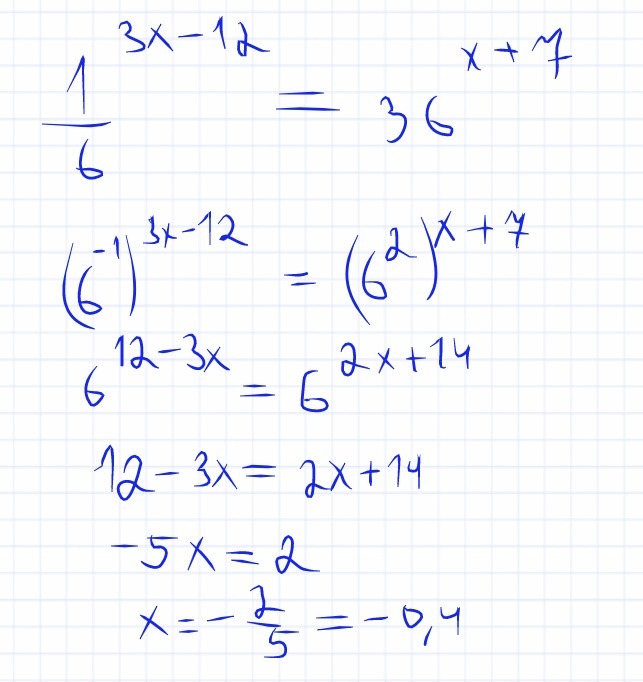 1/6^(3x-12) = 36^(x+7)
(6^(-1))^(3x-12) = (6^2)^(x+7)
6^(12-3x) = 6^(2x+14)
12-3x = 2x+14
-5x = 2
x = -2/5 = -0,4